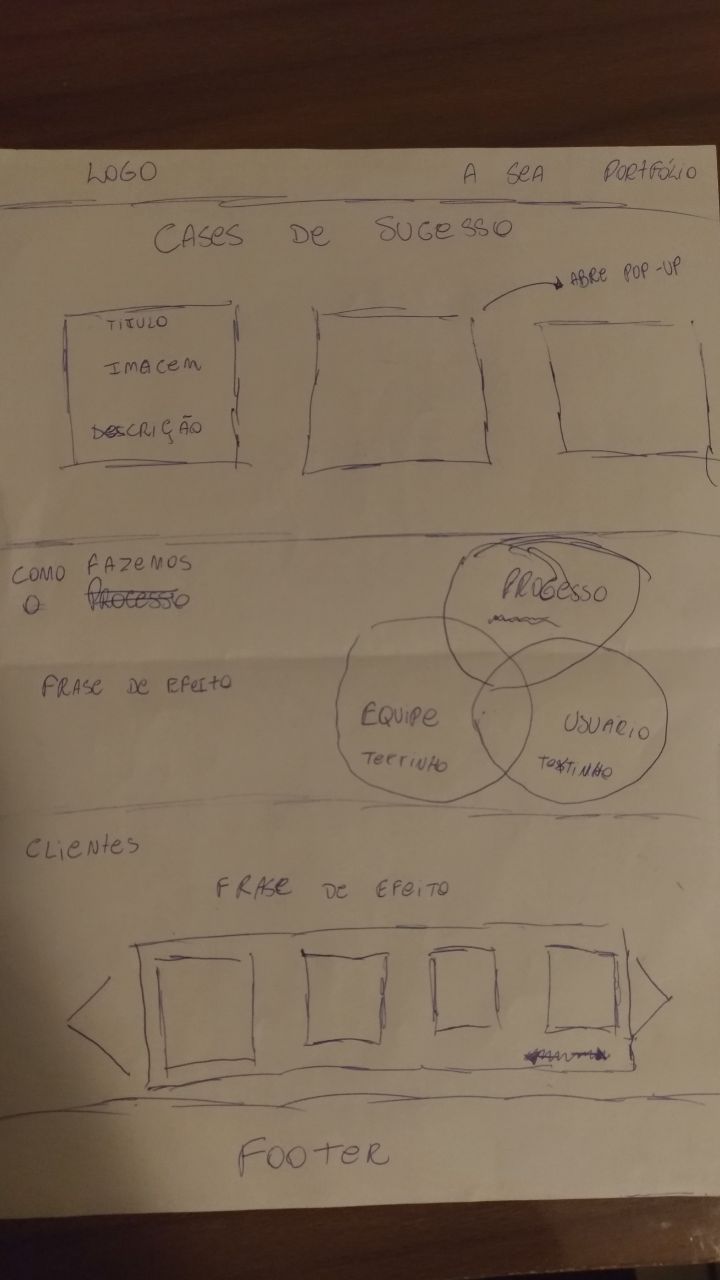 LOGO A SEA PORTFÓLIO
CASES DE SUCESSO
ABRE POP-UP
TITULO
IMAGEM
DESCRIÇÃO
COMO FAZEMOS
O PROCESSO
PROCESSO
FRASE DE EFEITO
EQUIPE
TEXTINHO
USUÁRIO
TEXTINHO
CLIENTES
FRASE DE EFEITO
FOOTER